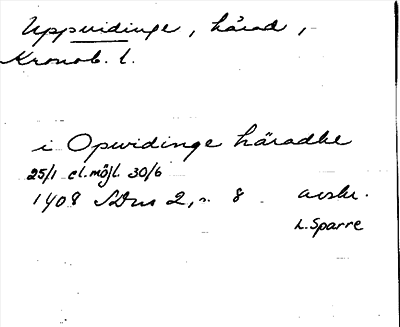 Uppvidinge, härad,
Kronob. l.
i Opwidinge häradhe
25/1 el. möjl. 30/6
1408 SDns 2, s. 8 avskr.
L. Sparre